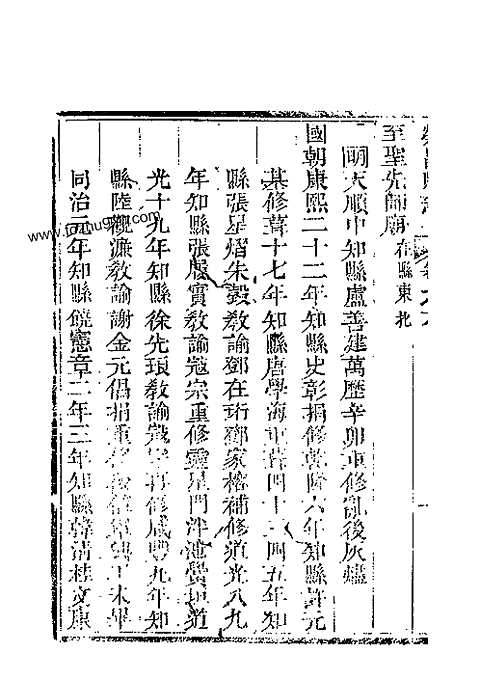 至聖先師廟在縣東北
明天順中知縣盧善建萬歷辛卯重修亂後灰燼
國朝康熙二十二年知縣史彰捐修乾隆六年知縣許元
基修葺十七年知縣唐學海重葺四十三四五年知
縣張星熠朱㲄教諭鄧在珩鄧家榕補修道光八九
年知縣張履實教諭寇宗重修靈星門泮池黌垣道
光十九年知縣徐先瑣教諭寇宗再修咸豐九年知
縣陸觀濂教諭謝金元倡捐重修工未畢
同治元年知縣饒憲章二年三年知縣韓清桂文康
www.famugen.com